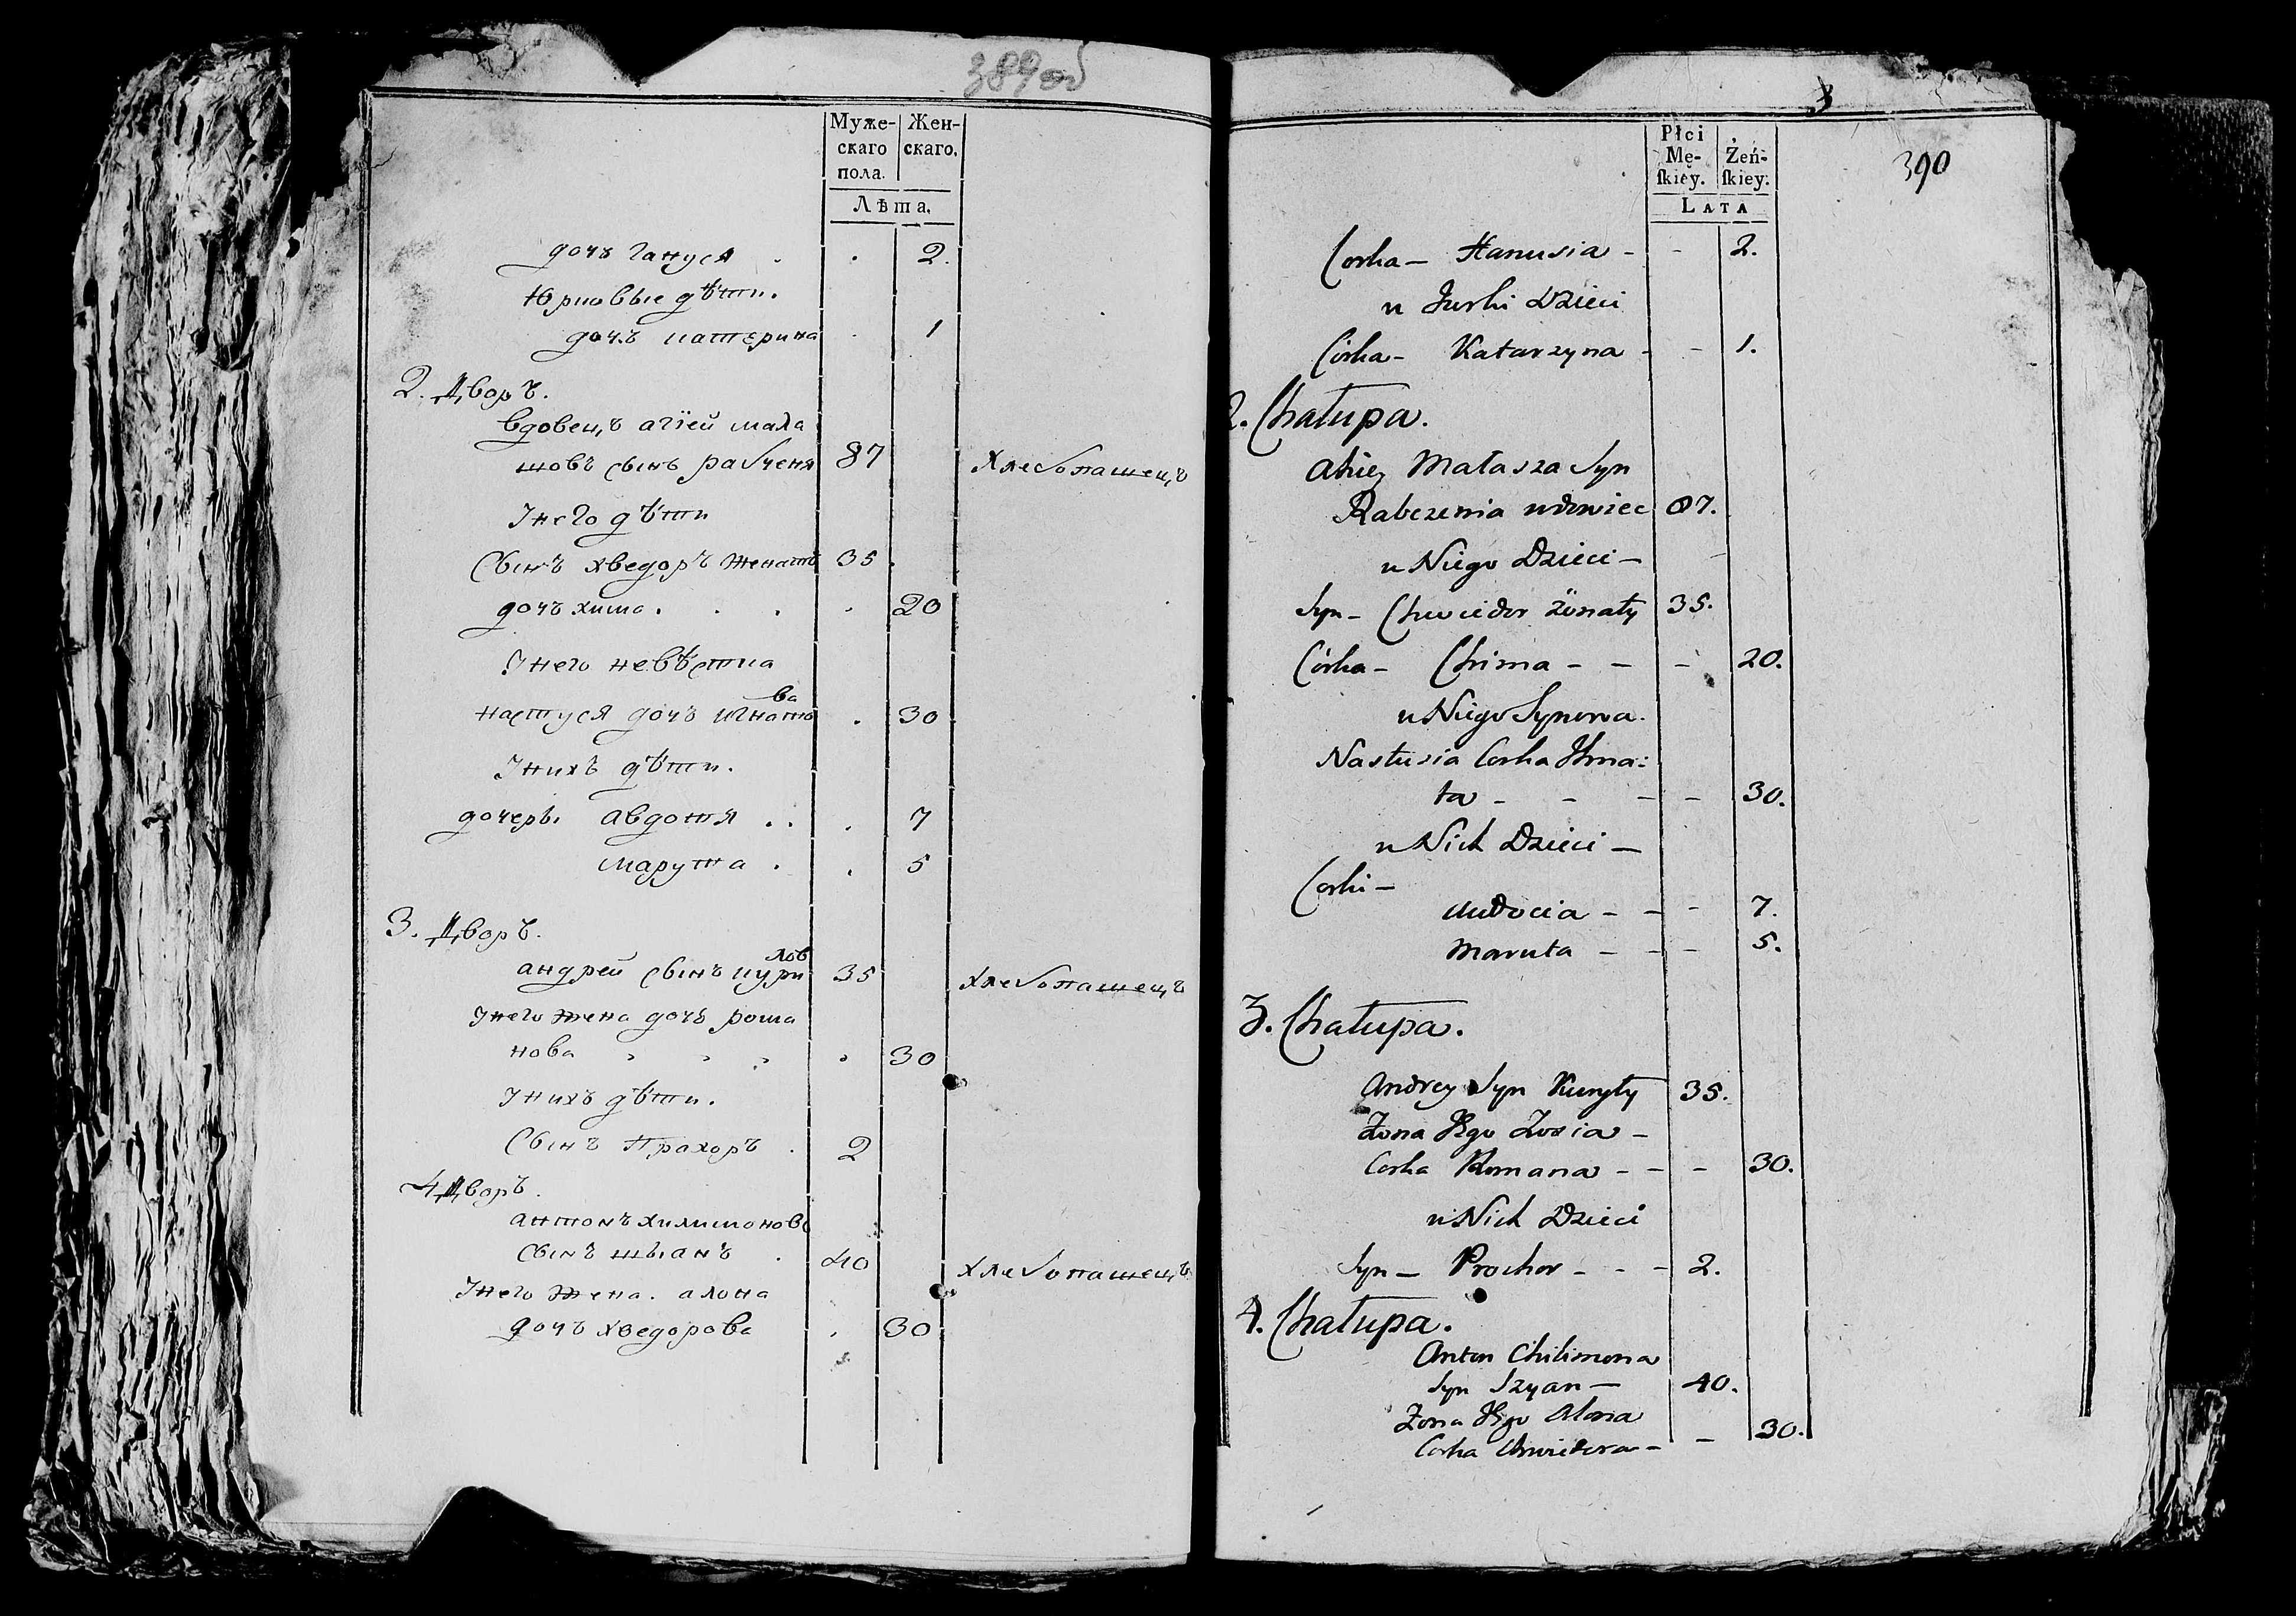 389 об
Муже- Жен-
скаго скаго.
пола.
Лѣта.
дочъ гануся . . 2.
Юрковые дѣти.
дочъ катерина . 1
2. Дворъ.
вдовецъ агiей мала
шовъ сынъ рабченя 87 Хлебопашецъ
Унего дѣти
Сынъ хведоръ женатъ 35
дочъ хима . . . . 20
Унего невѣстка
ва
настуся дочъ игнато . 30
Унихъ дѣти.
дочеры авдотя . . . 7
марута . . 5
3. Дворъ.
лов
андрей сынъ кури 35 хлебопашецъ
Унего жена дочъ рома
нова 30
Унихъ дѣти.
Сынъ Прахоръ . 2
4 Дворъ.
антонъ хилимоновъ
сынъ шыанъ . 40 хлебопашецъ
Унего жена. алона
дочъ хведорова . 30
3
390
Płci
Mę- Żeń-
ſkiey. ſkiey.
LATA
Corka – Hanusia – – 2.
u Jurki Dzieci
Córka – Katarzyna – – 1.
2. Chałupa.
Ahiey Małasza Syn
Rabczenia wdowiec 87.
u Niego Dzieci –
Syn – Chwiedor żonaty 35.
Córka – Chima – – – 20.
u Niego Synowa.
Nastusia Corka Ihna:
ta – – – – 30.
u Nich Dzieci –
Corki –
Audocia – – – 7.
Maruta – – – 5.
3. Chałupa.
Andrey Syn Kuryły 35.
Żona Jego Zosia –
Corka Romana – – – 30.
u Nich Dzieci
Syn – Prochor – – – 2.
4. Chałupa.
Anton Chilimona
Syn Szyan – 40.
Żona Jego Alona
Corka Chwiedora – – 30.